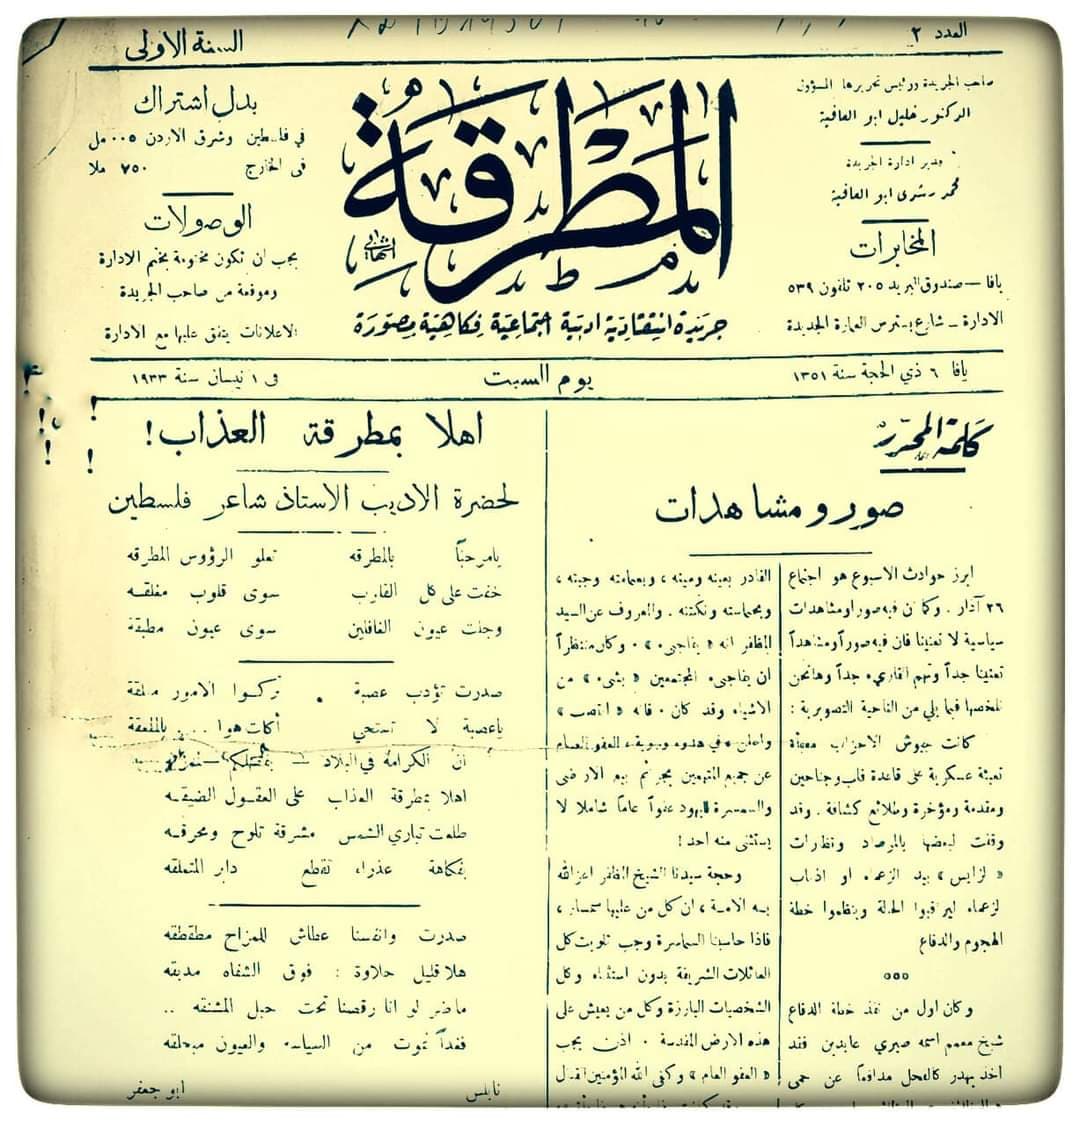 العدد ٢
السنة الاولى
صاحب الجريدة ورئيس تحريرها المسؤول
الدكتور خليل ابو العافية
مدير ادارة الجريدة
محمد رشدي ابو العافية
المخابرات
يافا — صندوق البريد ٢٠٥ تلفون ٥٣٩
الادارة ـ شارع بسترس العمارة الجديدة
المطرقة
جريدة انتقادية ادبية اجتماعية فكاهية مصورة
بدل اشتراك
في فلسطين وشرق الاردن ٥٠٠ مل
في الخارج ٧٥٠ ملا
الوصولات
يجب ان تكون مختومة بختم الادارة
وموقعة من صاحب الجريدة
الاعلانات يتفق عليها مع الادارة
يافا ٦ ذي الحجة سنة ١٣٥١
يوم السبت
في ١ نيسان سنة ١٩٣٣
كلمة المحرر
صور ومشاهدات
ابرز حوادث الاسبوع هو اجتماع
٢٦ آذار . وكما ان فيه صور اومشاهدات
سياسية لا تعنينا فان فيه صوراً ومشاهداً
تعنينا جداً وتهم القاريء جداً وهانحن
نلخصها فيما يلي من الناحية التصويرية :
كانت جيوش الاحزاب معبأة
تعبئة عسكرية على قاعدة قلب وجناحين
ومقدمة ومؤخرة وطلائع كشافة . وقد
وقفت لبعضها بالمرصاد ونظارات
« لزايس » بيد الزعماء او اذناب
لزعماء ليرقبوا الحالة وينظموا خطة
الهجوم والدفاع
٥٥٥
وكان اول من نفذ خطة الدفاع
شيخ معمم اسمه صبري عابدين فقد
اخذ يهدر كالفحل مدافعاً عن حمى
القادر بعينه ومينه ، وبعمامته وجبته ،
وبحماسته ونكتته . والمعروف عن السيد
المظفر انه « يفاجىء » . وكان منتظراً
ان يفاجىء المجتمعين « بشيء » من
الاشياء وقد كان . فانه « انتصب »
واعلن « في هدوء وبويقة » العفو العام
عن جميع المتهمين بجرائم بيع الاراضي
والسمسرة لليهود عفواً عاماً شاملا لا
يستثنى منه احد !
وحجة سيدنا الشيخ المظفر اعز الله
به الامة ، ان كل من عليها سمسار ،
فاذا حاسبنا السماسرة وجب تلويث كل
العائلات الشريفة بدون استثناء وكل
الشخصيات البارزة وكل من يعيش على
هذه الارض المقدسة . اذن يجب
« العفو العام » وكفى الله المؤمنين القتال
اهلا بمطرقة العذاب !
لحضرة الاديب الاستاذ شاعر فلسطين
يامرحباً بالمطرقه تعلو الرؤوس المطرقه
خفت على كل القلوب سوى قلوب مغلقه
وجلت عيون الغافلين سوى عيون مطبقة
صدرت تؤدب عصبة تركوا الامور معلقة
ياعصبة لا تستحي أكاتهوا ... بالملعقة
ان الكرامة في البلاد —
اهلا بمطرقة العذاب على العقول الضيقه
طلعت تباري الشمس مشرقة تلوح ومحرقه
بفكاهة عذراء تقطع دابر المتملقه
صدرت وانفسنا عطاش للمزاح مطقطقه
هلا قليل حلاوة : فوق الشفاه مدبقه
ماضر لو انا رقصنا تحت حبل المشنقه ..
فغداً نموت من السياسه والعيون مبحلقه
نابلس ابو جعفر